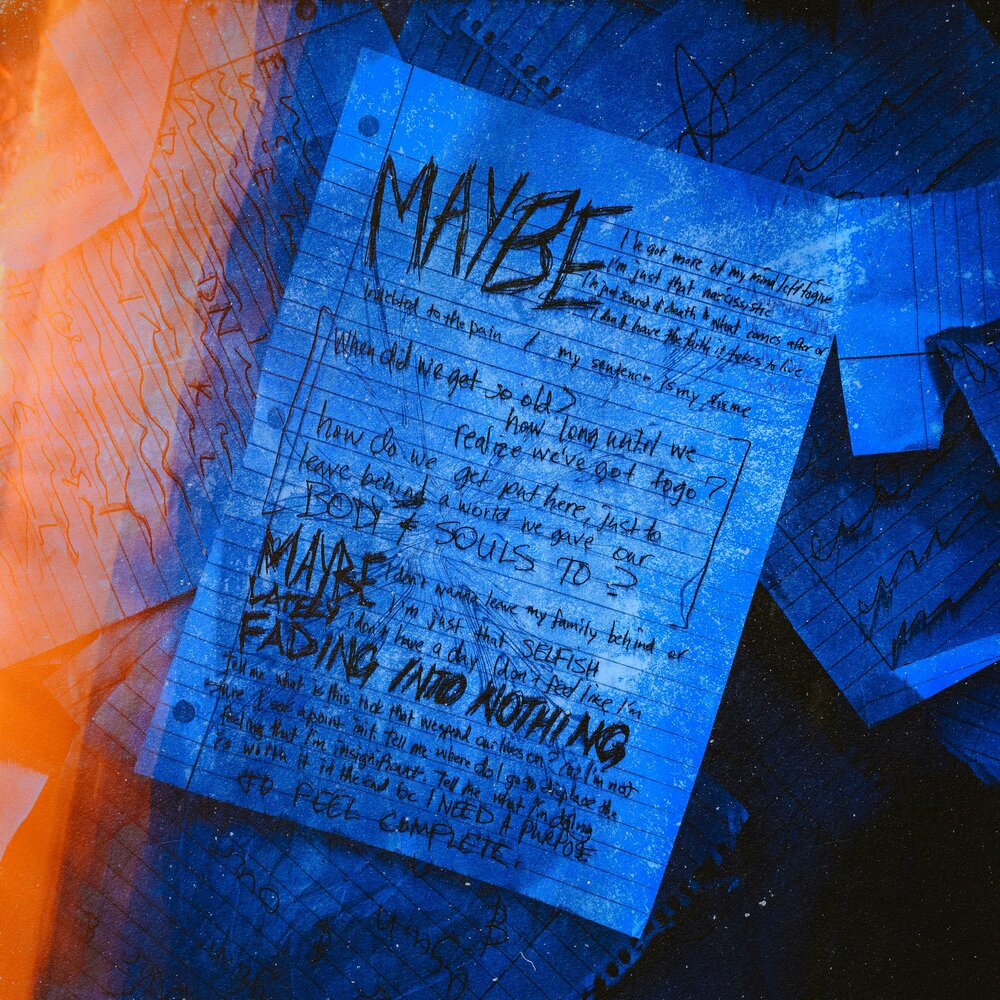 MAYBE
I've got more of my mind left to give
I'm just that narcissistic
I'm just scared of death & what comes after or
I don't have the faith it takes to live
Indebted to the pain / my sentence is my shame
When did we get so old?
how long until we
realize we've got to go?
how do we get put here, just to
leave behind a world we gave our
BODY & SOULS TO?
MAYBE I don't wanna leave my family behind or
I'm just that SELFISH
LATELY I don't have a day I don't feel like I'm
FADING INTO NOTHING
Tell me what is this that we spend our lives on? Cuz I'm not
sure I see a point in it. Tell me where do I go to displace the
feeling that I'm insignificant. Tell me what I'm doing
is worth it in the end bc I NEED A PURPOSE
TO FEEL COMPLETE.